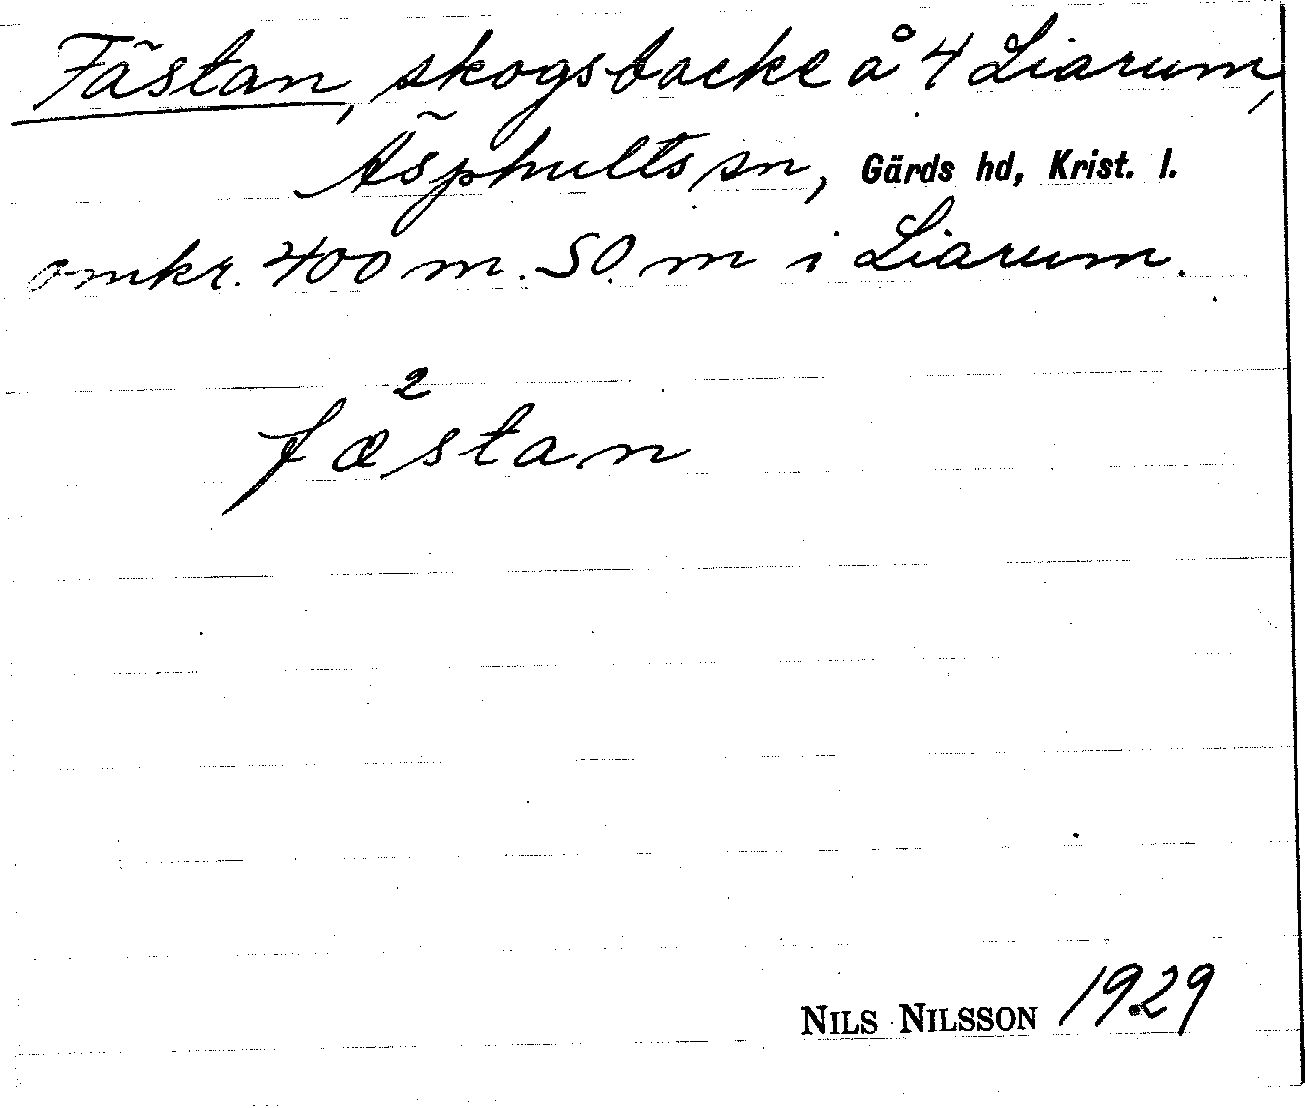 Fästan, skogsbacke å 4 Liarum,
Äsphults sn, Gärds hd, Krist. l.
omkr. 400 m. SO. m i Liarum.
2
fæstan
NILS NILSSON 1929